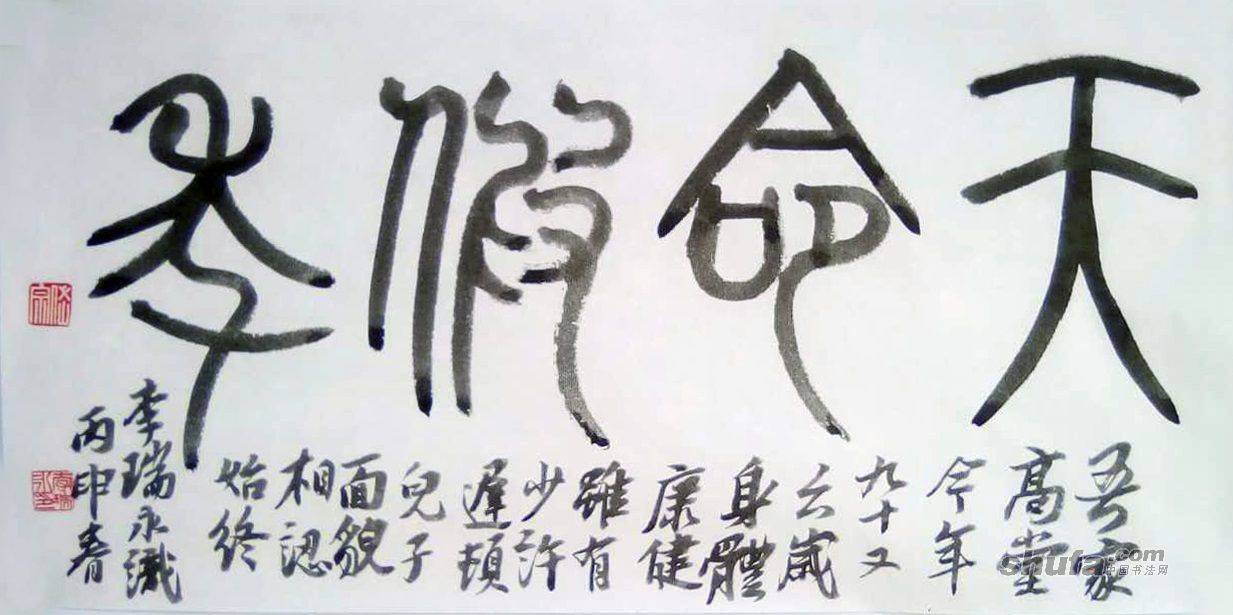 天命
吾家
高堂
今年
九十又
六歲
身體
康健
雖有
少許
遲頓
兒子
面貌
相認
始終
李瑞永識
丙申春
shufa.com
中国书法网